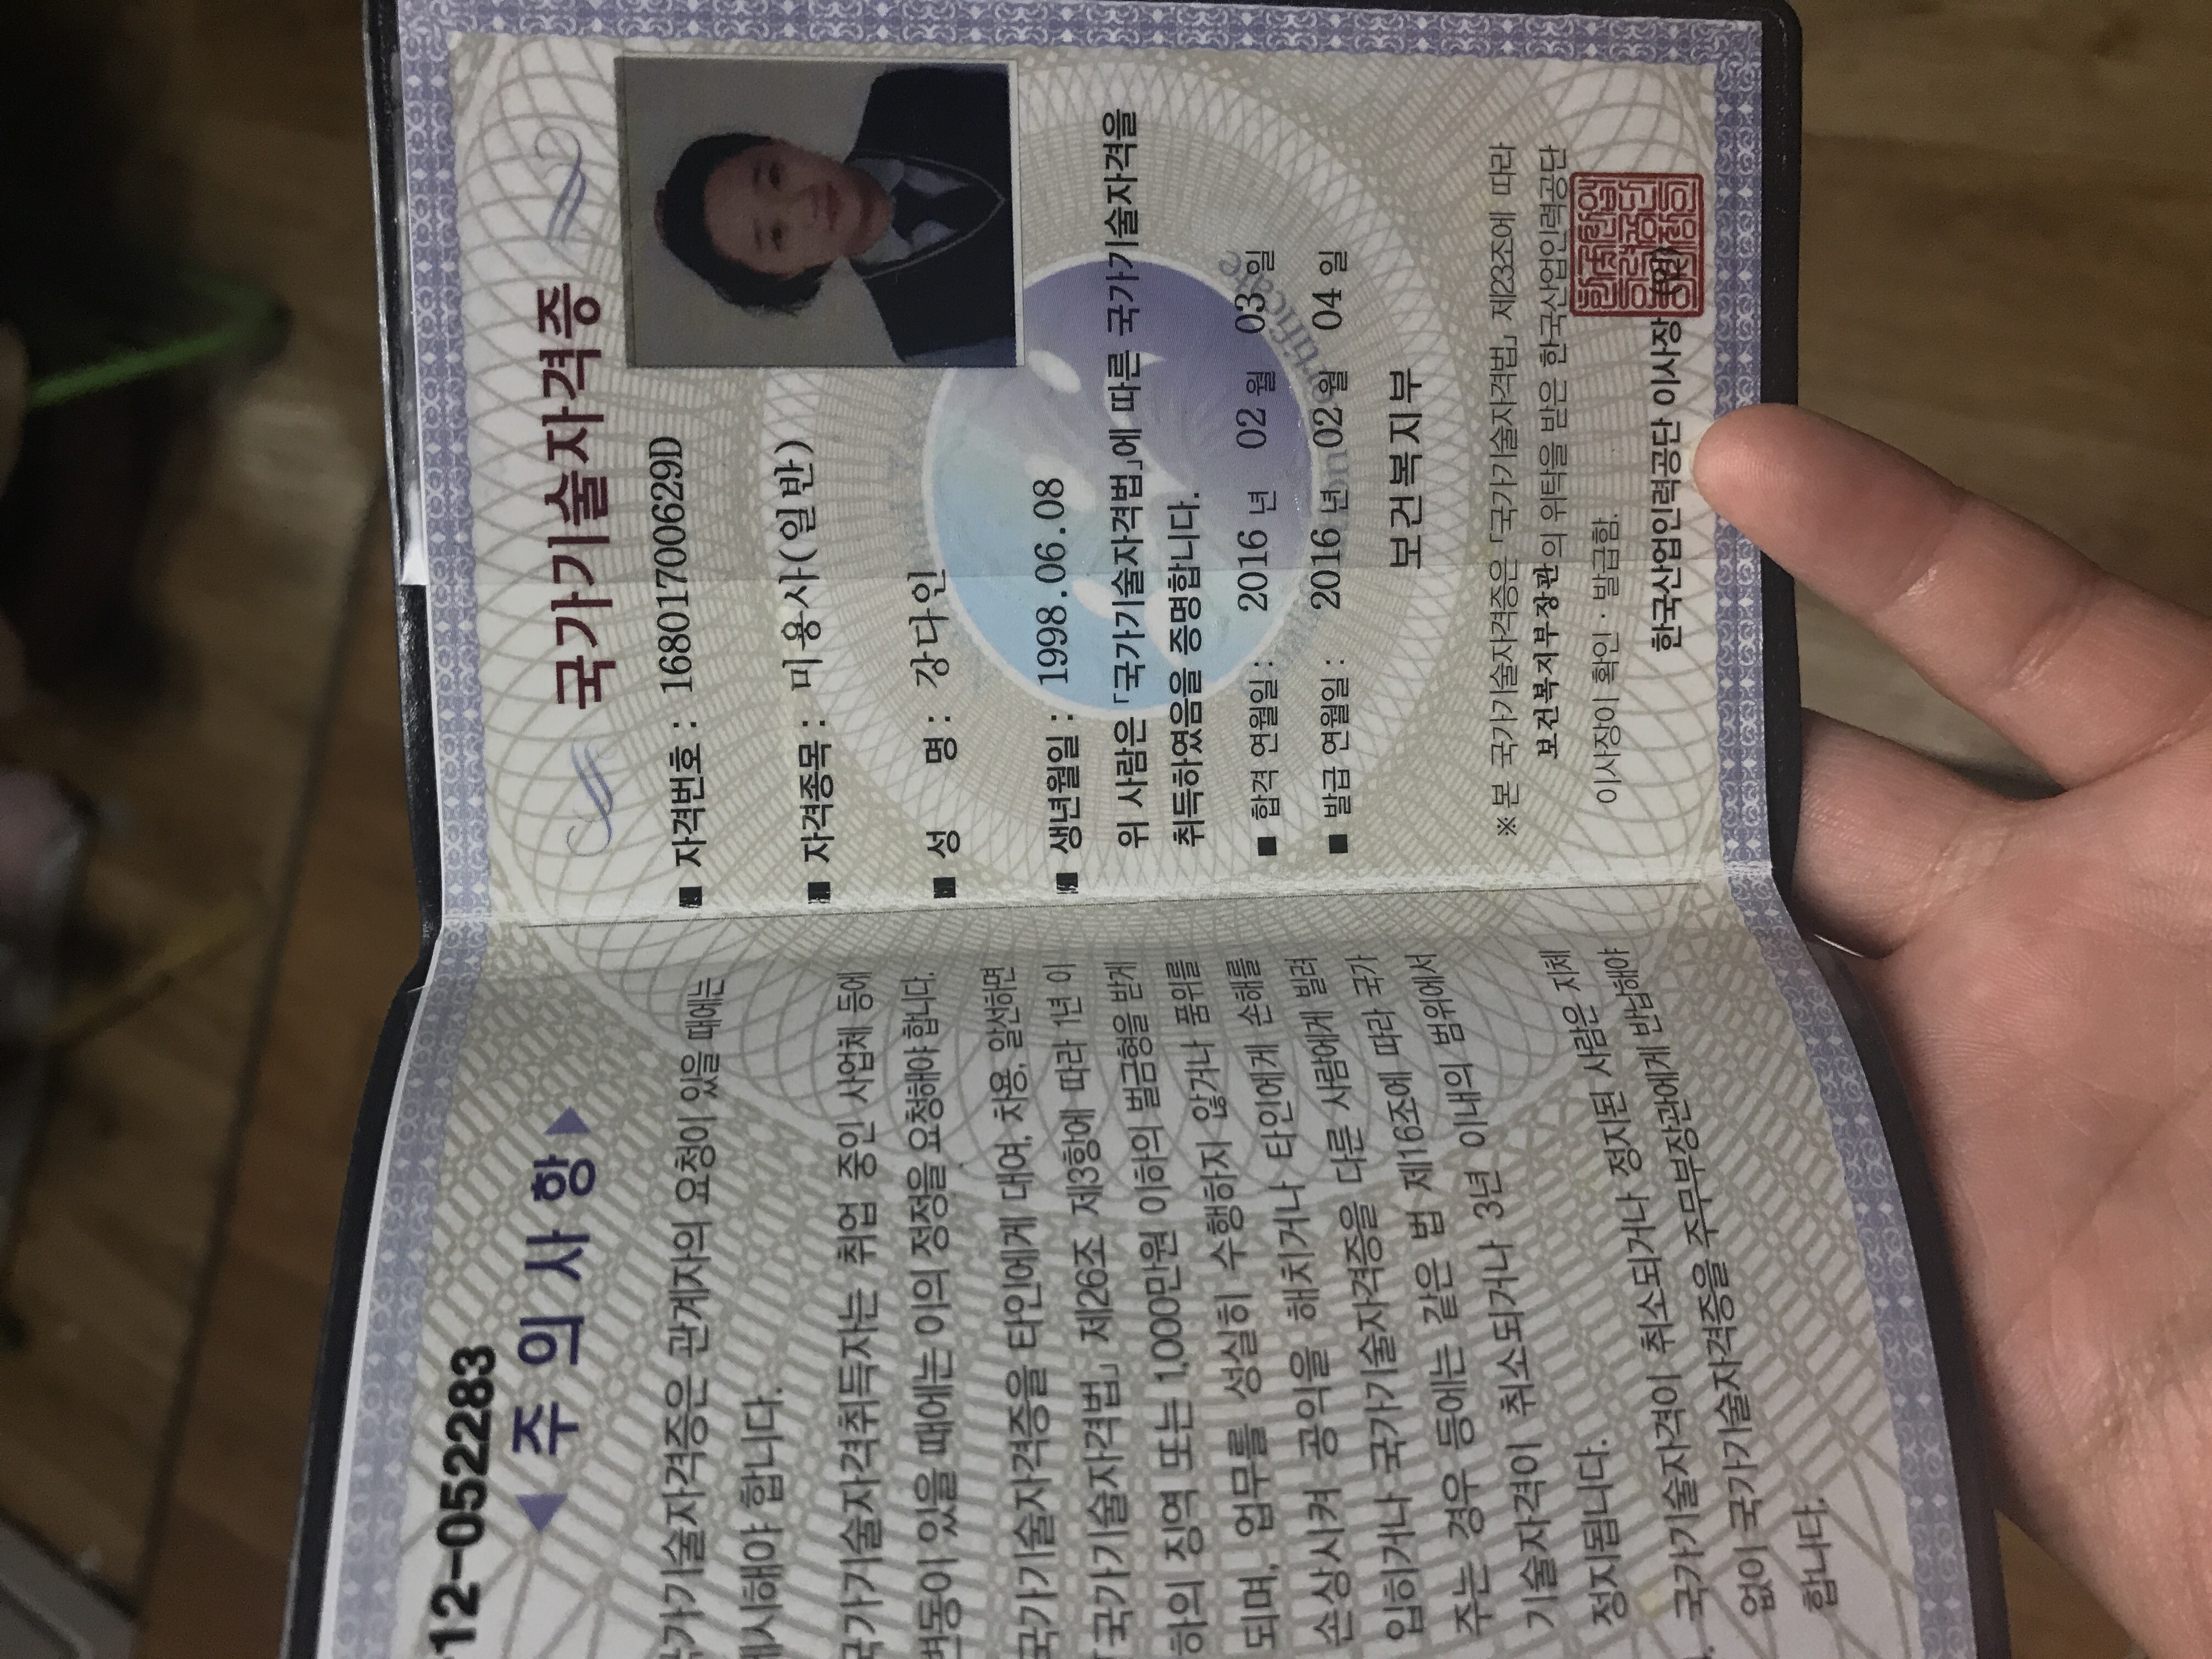 12-052283
◀ 주 의 사 항 ▶
국가기술자격증은 관계자의 요청이 있을 때에는
제시해야 합니다.
국가기술자격취득자는 취업 중인 사업체 등에
변동이 있을 때에는 이의 정정을 요청해야 합니다.
국가기술자격증을 타인에게 대여, 차용, 알선하면
「국가기술자격법」 제26조 제3항에 따라 1년 이
하의 징역 또는 1,000만원 이하의 벌금형을 받게
되며, 업무를 성실히 수행하지 않거나 품위를
손상시켜 공익을 해치거나 타인에게 손해를
입히거나 국가기술자격증을 다른 사람에게 빌려
주는 경우 등에는 같은 법 제16조에 따라 국가
기술자격이 취소되거나 3년 이내의 범위에서
정지됩니다.
국가기술자격이 취소되거나 정지된 사람은 지체
없이 국가기술자격증을 주무부장관에게 반납해야
합니다.
국가기술자격증
■ 자격번호 : 16801700629D
■ 자격종목 : 미용사(일반)
■ 성 명 : 강다인
■ 생년월일 : 1998.06.08
위 사람은 「국가기술자격법」에 따른 국가기술자격을
취득하였음을 증명합니다.
■ 합격 연월일 : 2016 년 02 월 03 일
■ 발급 연월일 : 2016 년 02 월 04 일
보건복지부
※ 본 국가기술자격증은 「국가기술자격법」 제23조에 따라
보건복지부장관의 위탁을 받은 한국산업인력공단
이사장이 확인 · 발급함.
한국산업인력공단 이사장 (인)